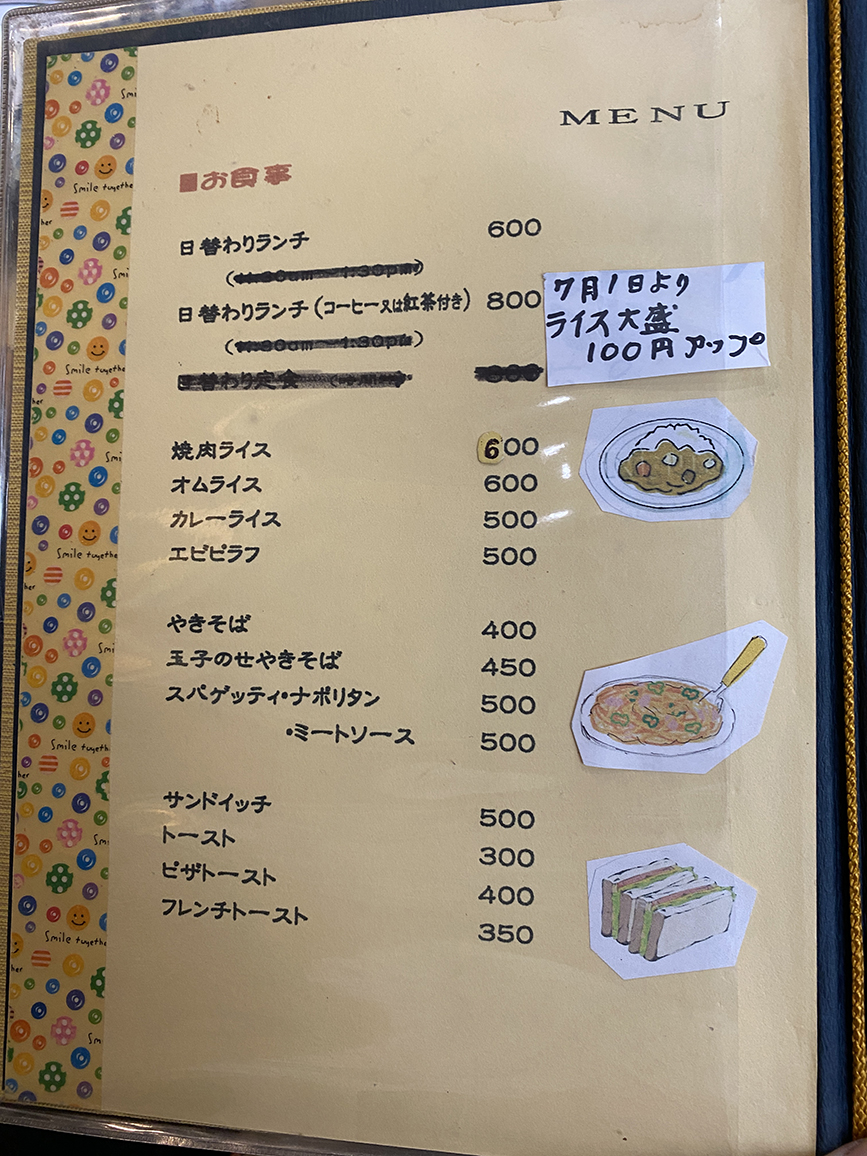 MENU
■お食事
日替わりランチ 600
(11:30am〜1:30pm)
日替わりランチ(コーヒー又は紅茶付き) 800
(11:30am〜1:30pm)
7月1日より
ライス大盛
100円アップ
日替わり定食
焼肉ライス 600
オムライス 600
カレーライス 500
エビピラフ 500
やきそば 400
玉子のせやきそば 450
スパゲッティ・ナポリタン 500
・ミートソース 500
サンドイッチ 500
トースト 300
ピザトースト 400
フレンチトースト 350
Smile together
Smile together
Smile together
Smile together
Smile together